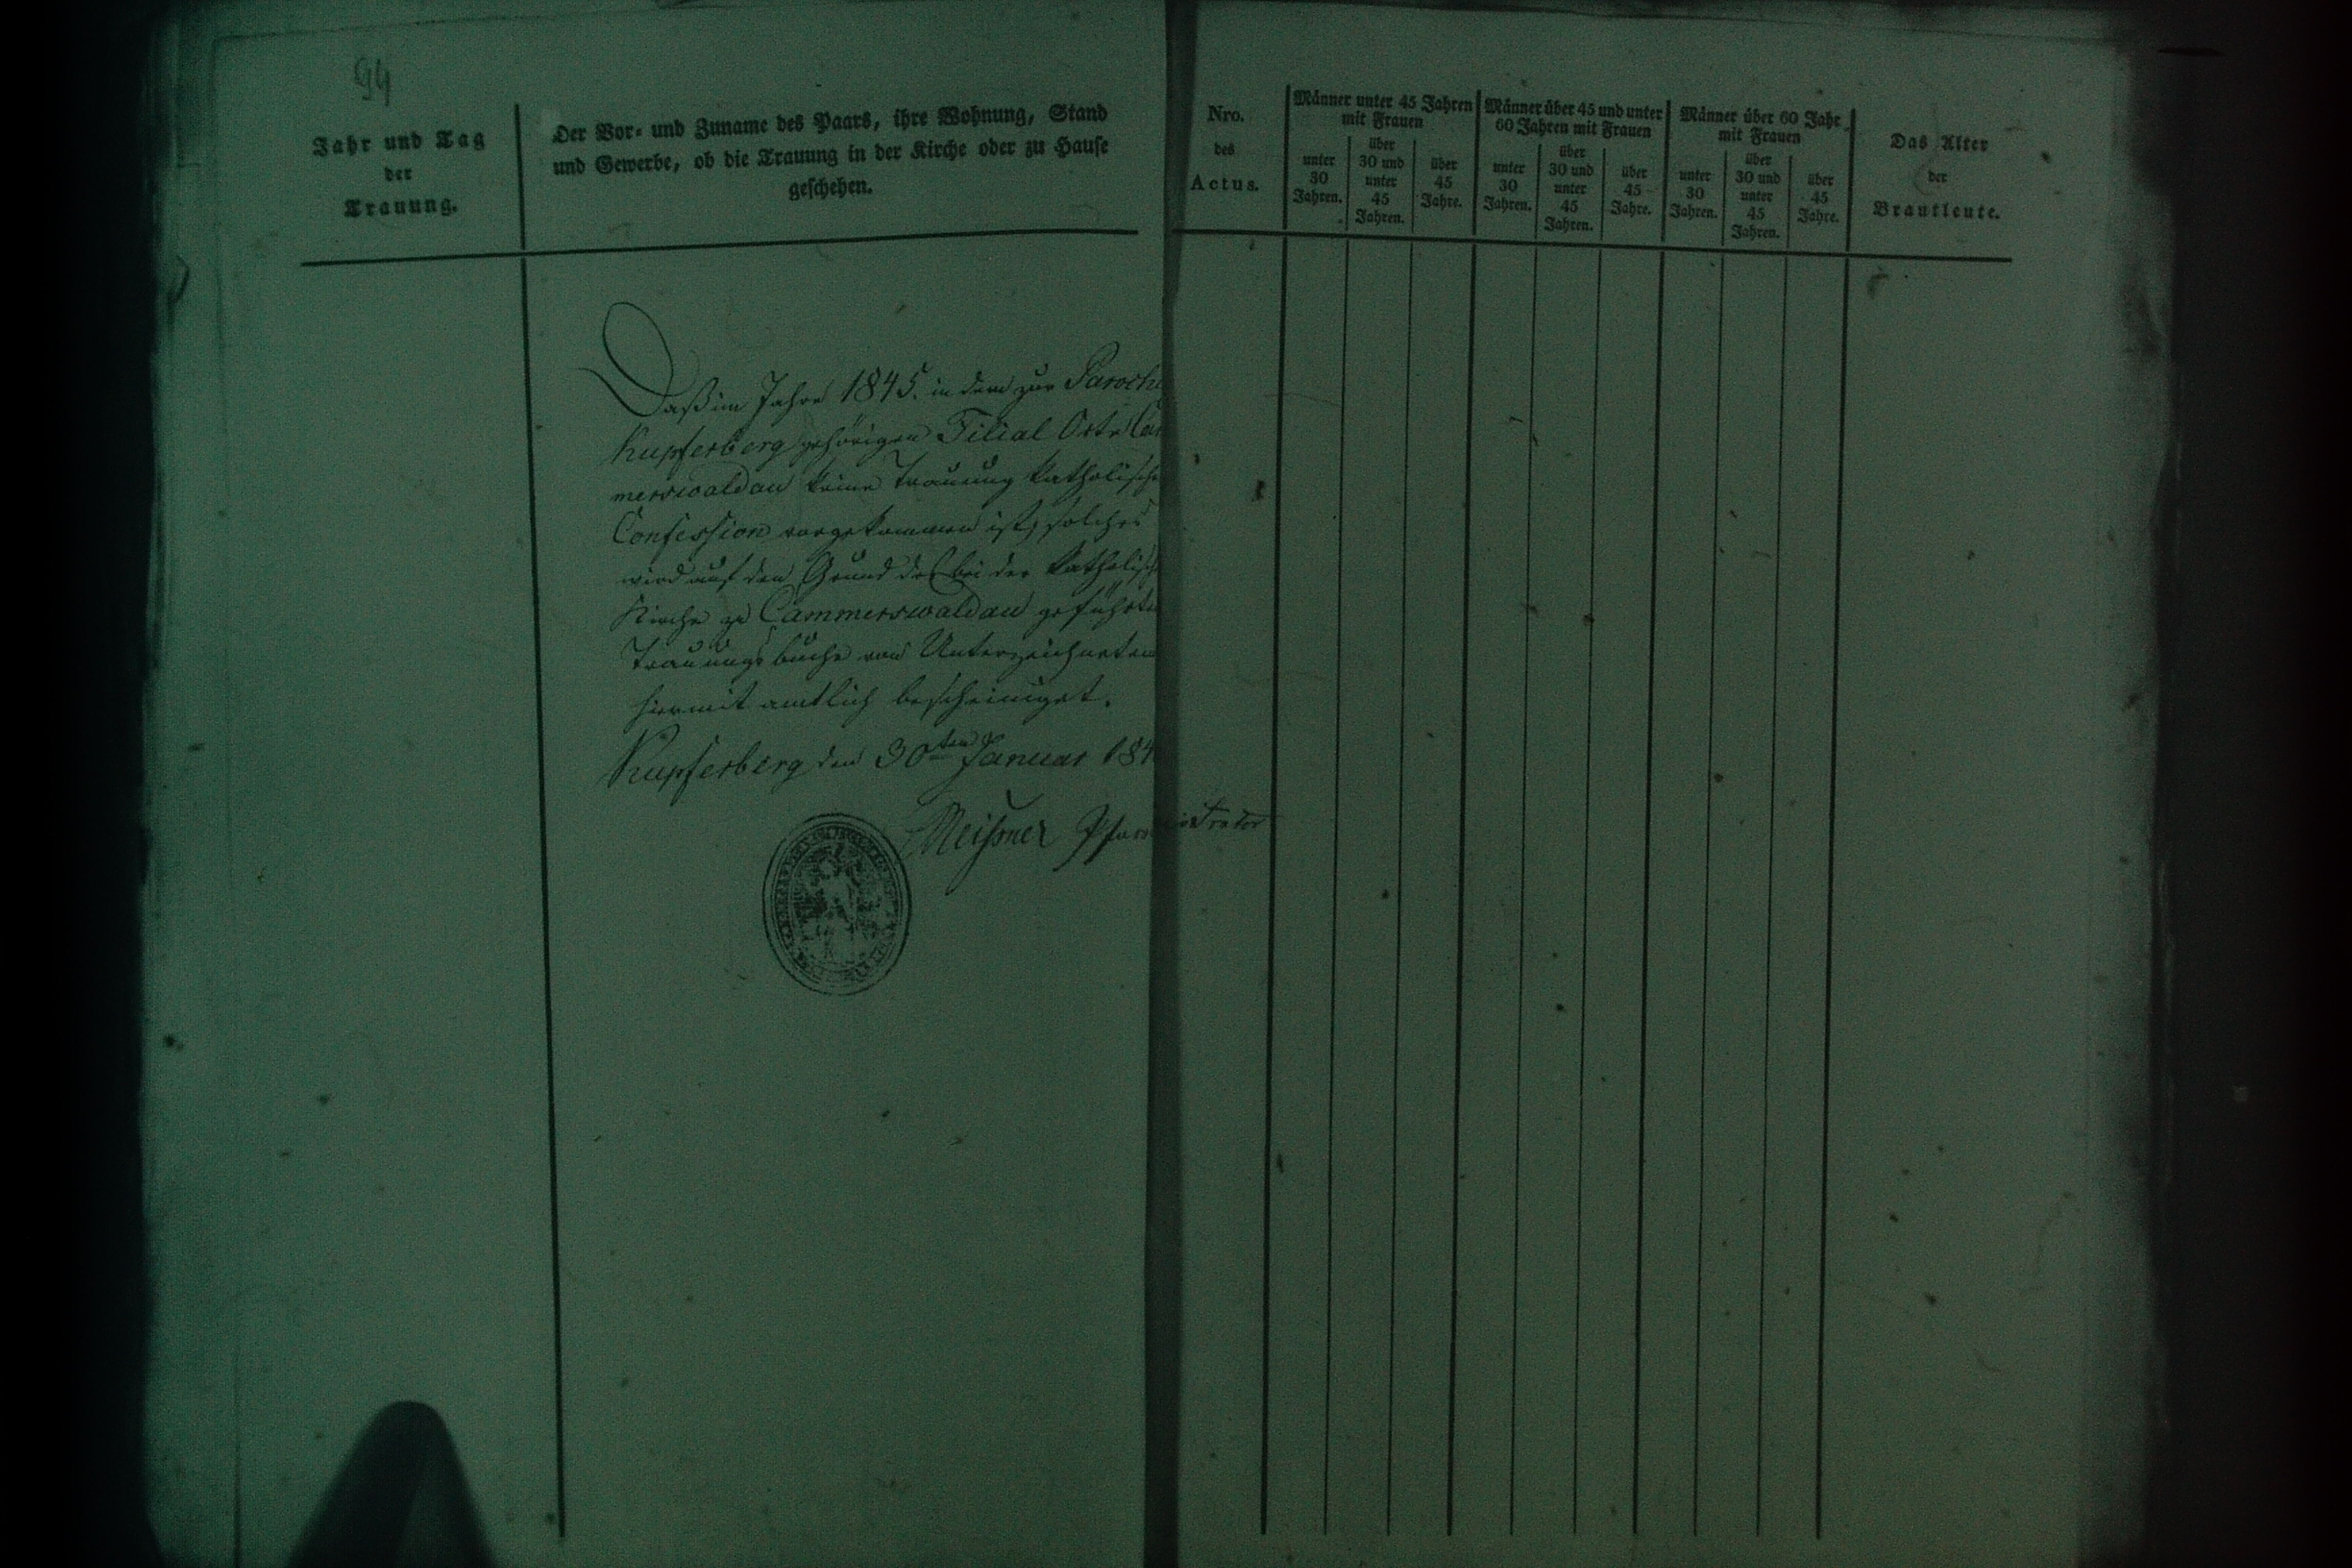 94
Jahr und Tag
der
Trauung.
Der Vor- und Zuname des Paars, ihre Wohnung, Stand
und Gewerbe, ob die Trauung in der Kirche oder zu Hause
geschehen.
Daß im Jahre 1845. in dem zur Paroch
Kupferberg gehörigen Filial Orte Cam
merswaldau keine Trauung katholische
Confession vorgekommen ist, solches
wird auf den Grund des bei der katholisch
Kirche zu Cammerswaldau geführten
Trauungsbuche von Unterzeichneten
hiermit amtlich bescheiniget.
Kupferberg den 30ten Januar 184
Meißner
Nro.
des
Actus.
Männer unter 45 Jahren
mit Frauen
unter
30
Jahren.
über
30 und
unter
45
Jahren.
über
45
Jahre.
Männer über 45 und unter
60 Jahren mit Frauen
unter
30
Jahren.
über
30 und
unter
45
Jahren.
über
45
Jahre.
Männer über 60 Jahr
mit Frauen
unter
30
Jahren.
über
30 und
unter
45
Jahren.
über
45
Jahre.
Das Alter
der
Brautleute.